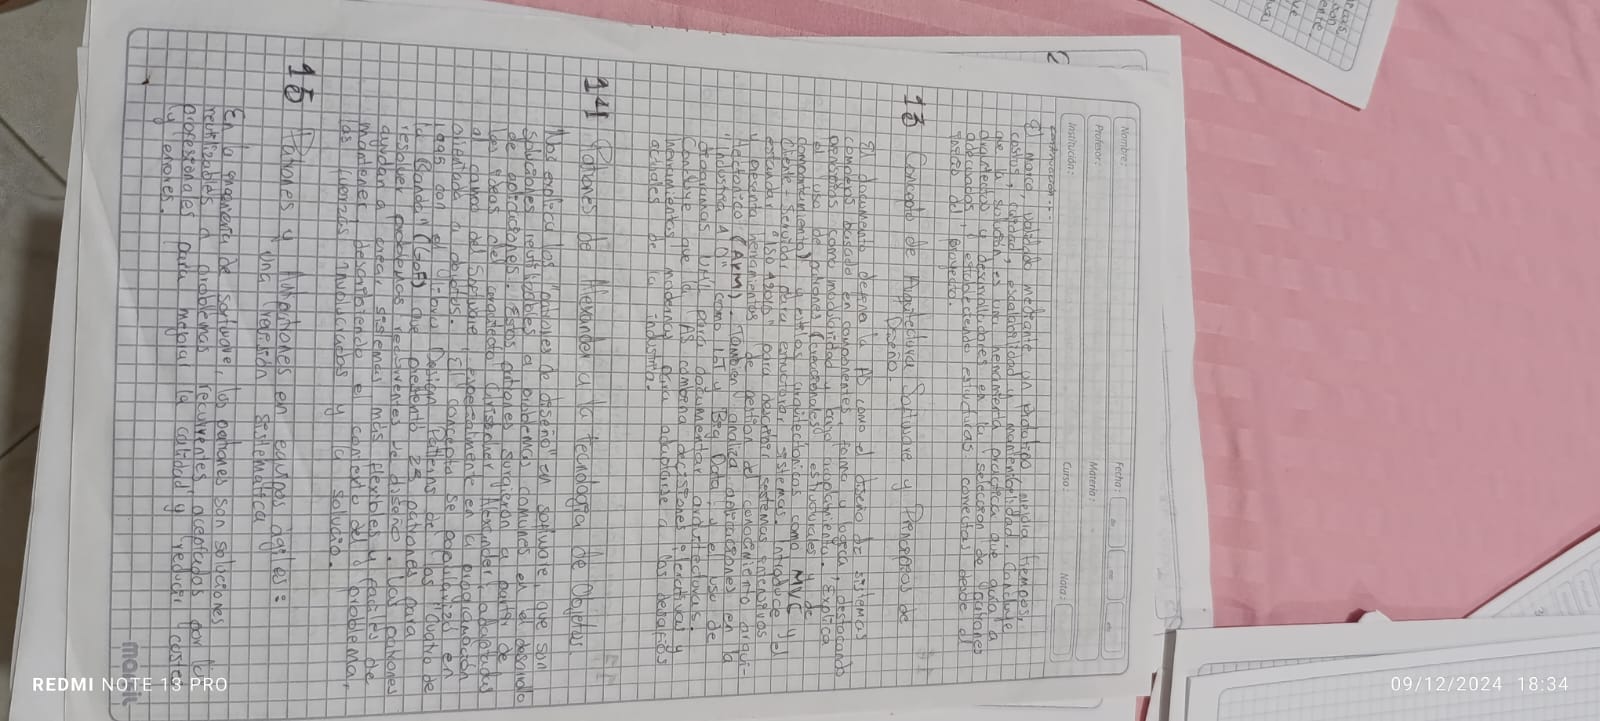 Nombre:
Fecha:
Profesor:
Materia:
Institución:
Curso:
Nota:
continuación...
El marco, validado mediante un prototipo, evalúa tiempos,
costos, calidad, escalabilidad y mantenibilidad. Concluye
que la solución es una herramienta práctica que guía a
arquitectos y desarrolladores en la selección de patrones
adecuados, estableciendo estructuras correctas desde el
inicio del proyecto.
13 Concepto de Arquitectura Software y Principios de
Diseño.
El documento define la AS como el diseño de sistemas
complejos basado en componentes, forma y lógica, destacando
principios como modularidad y bajo acoplamiento. Explica
el uso de patrones (creacionales, estructurales y de
comportamiento) y estilos arquitectónicos como MVC y
cliente servidor para estructurar sistemas. Introduce el
estándar "ISO 42010" para describir sistemas
y presenta herramientas de gestión del conocimiento arqui-
tectónico (AKM). También analiza aplicaciones en la
"Industria 4.0" como IoT y Big Data, y el uso de
diagramas UML para documentar arquitecturas.
Concluye que la AS combina decisiones iterativas y
herramientas modernas para adaptarse a los desafíos
actuales de la industria.
14 Patrones de Alexander a la tecnología de Objetos.
Nos explica los "patrones de diseño" en software, que son
soluciones reutilizables a problemas comunes en el desarrollo
de aplicaciones. Estos patrones surgieron a partir de
las ideas del arquitecto Christopher Alexander, adaptadas
al campo del software, especialmente en la programación
orientada a objetos. El concepto se popularizó en
1995 con el libro Design Patterns de "los Cuatro de
la Banda" (GoF) que presentó 23 patrones para
resolver problemas recurrentes de diseño. Los patrones
ayudan a crear sistemas más flexibles y fáciles de
mantener, describiendo el contexto del problema,
las fuerzas involucradas y la solución.
15 Patrones y Antipatrones en equipos ágiles:
una revisión sistemática
En la ingeniería de software, los patrones son soluciones
reutilizables a problemas recurrentes, aceptados por los
profesionales para mejorar la calidad y reducir costos
y errores.
REDMI NOTE 13 PRO
09/12/2024 18:34